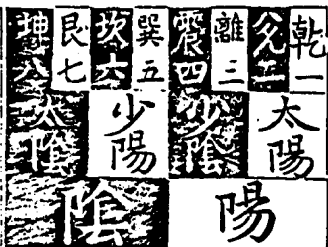 乾一 兌二 離三 震四 巽五 坎六 艮七 坤八
太陽 少陰 少陽 太陰
陽 陰